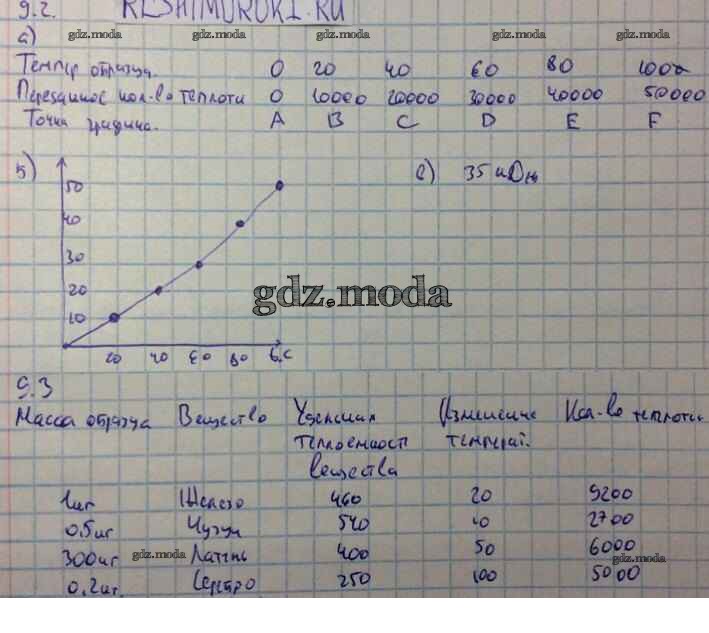 9.2. RESHIMUROKI.RU
а)
gdz.moda gdz.moda gdz.moda gdz.moda
Темпер образца. 0 20 40 60 80 100
Переданное кол-во теплоты 0 10000 20000 30000 40000 50000
Точка графика. A B C D E F
б)
50
40
30
20
10
20 40 60 80 t,C
в) 35 кДж
gdz.moda
9.3
Масса образца Вещество Удельная Изменение Кол-во теплоты
теплоемкост температ.
вещества
1кг Железо 460 20 9200
0.5кг Чугун 540 10 2700
300кг Латунь 400 50 6000
gdz.moda gdz.moda
0,2кг. Серебро 250 100 5000